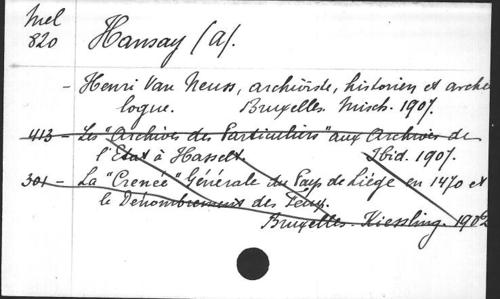 Mel
820
Hansay (A).
- Henri Van Neuss, archiviste, historien et arché
logue. Bruxelles. Misch. 1907.
413 - Les "Archives des Particuliers" aux Archives de
l'Etat à Hasselt. Ibid. 1907.
301 - La "Crenée" Générale du Pays de Liége en 1470 et
le Dénombrement des Feux.
Bruxelles. Kiessling. 1902